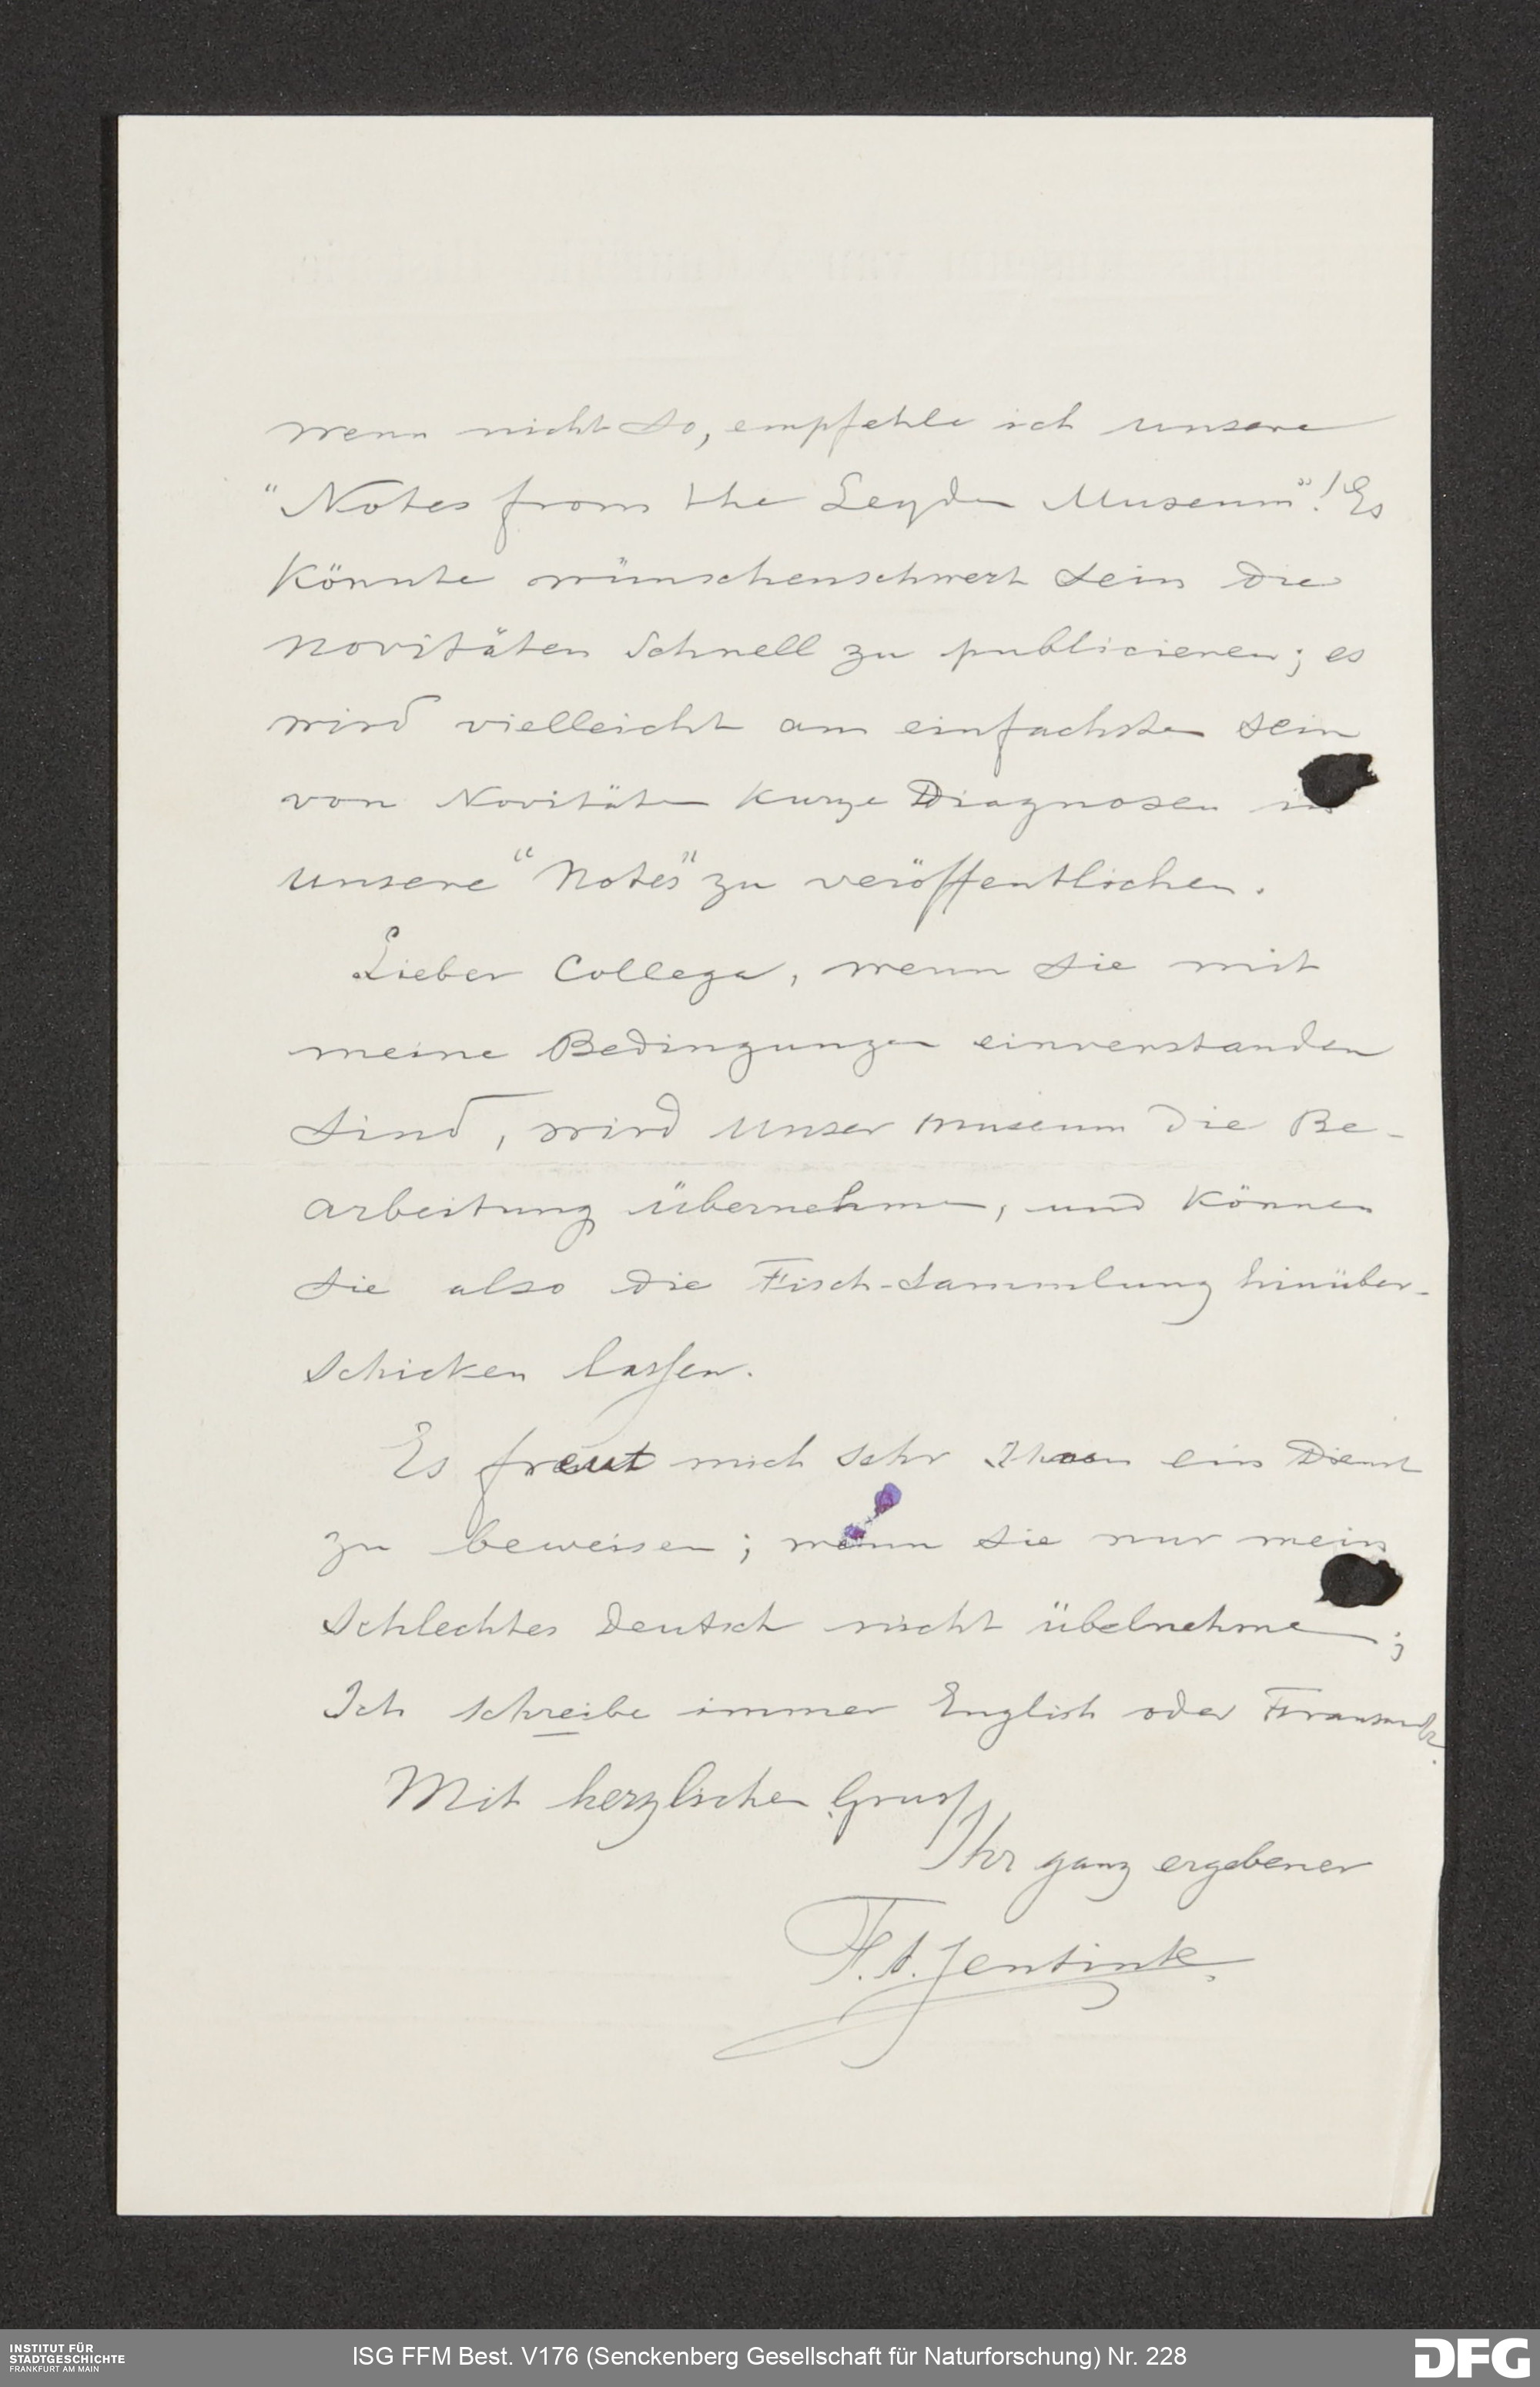 wenn nicht so, empfehle ich unsere
"Notes from the Leyden Museum"! Es
könnte wünschenschwert sein die
Novitäten schnell zu publicieren; es
wird vielleicht am einfachsten sein
von Novitäten kurze Diagnosen in
unsere "Notes" zu veröffentlichen.
Lieber College, wenn Sie mit
meine Bedingungen einverstanden
sind, wird unser Museum die Be-
arbeitung übernehmen, und können
Sie also die Fisch-Sammlung hinüber-
schicken lassen.
Es freut mich sehr Ihnen ein Dienst
zu beweisen; wenn Sie nur mein
schlechtes Deutsch nicht übelnehmen;
Ich schreibe immer English oder
Mit herzlichen Gruss
Ihr ganz ergebener
F. A. Jentink.
INSTITUT FÜR
STADTGESCHICHTE
FRANKFURT AM MAIN
ISG FFM Best. V176 (Senckenberg Gesellschaft für Naturforschung) Nr. 228
DFG